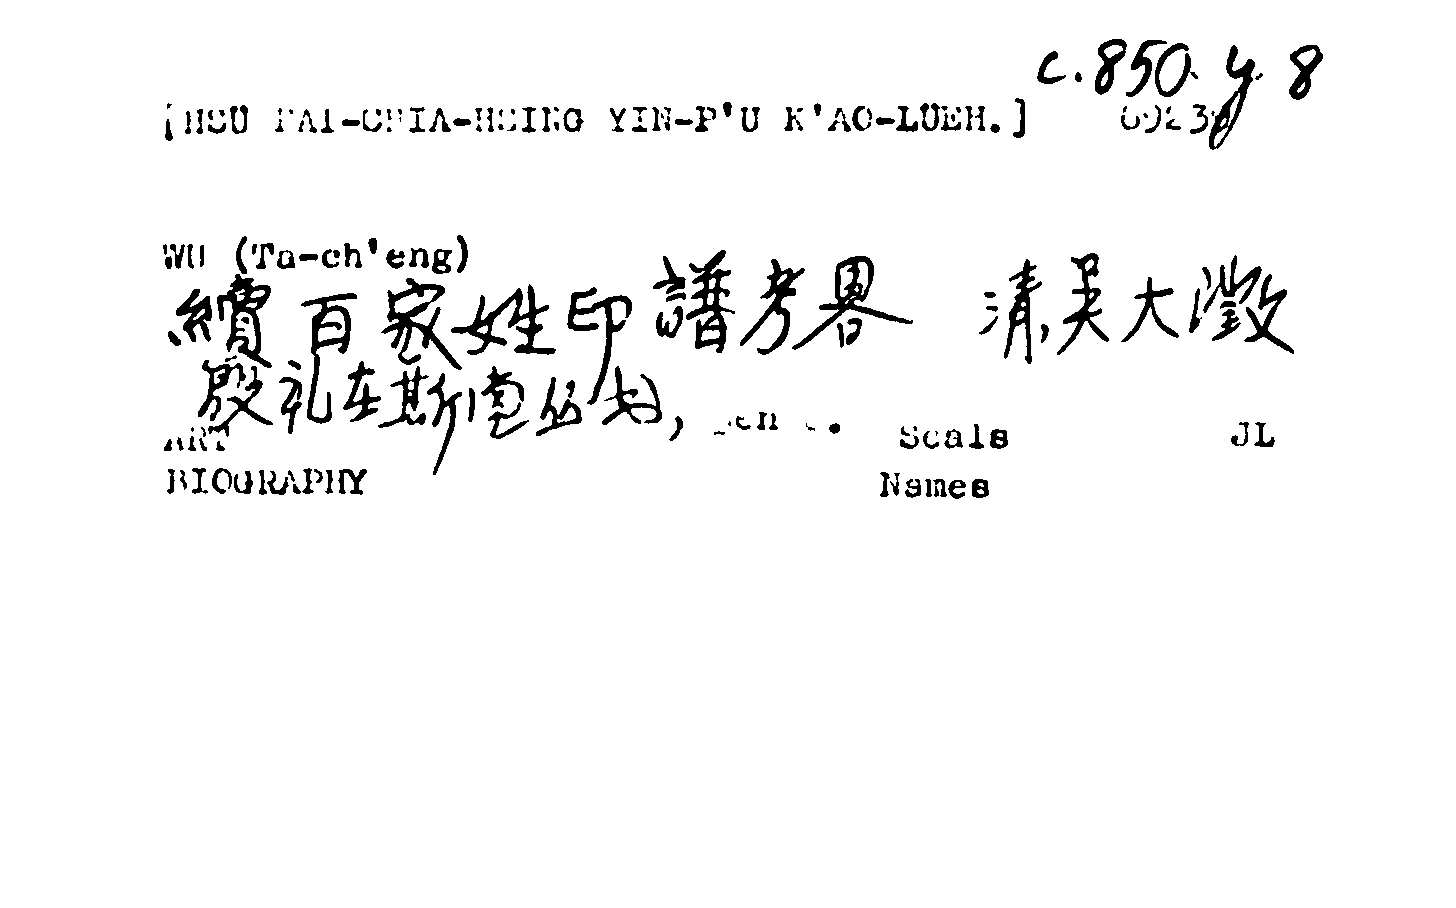 c.850.y.8
[HSU PAI-CHIA-HSING YIN-P'U K'AO-LÜEH.]
WU (Ta-ch'eng)
續百家姓印譜考畧 清吳大澂
殷礼在斯堂丛书,
ART Seals JL
BIOGRAPHY Names